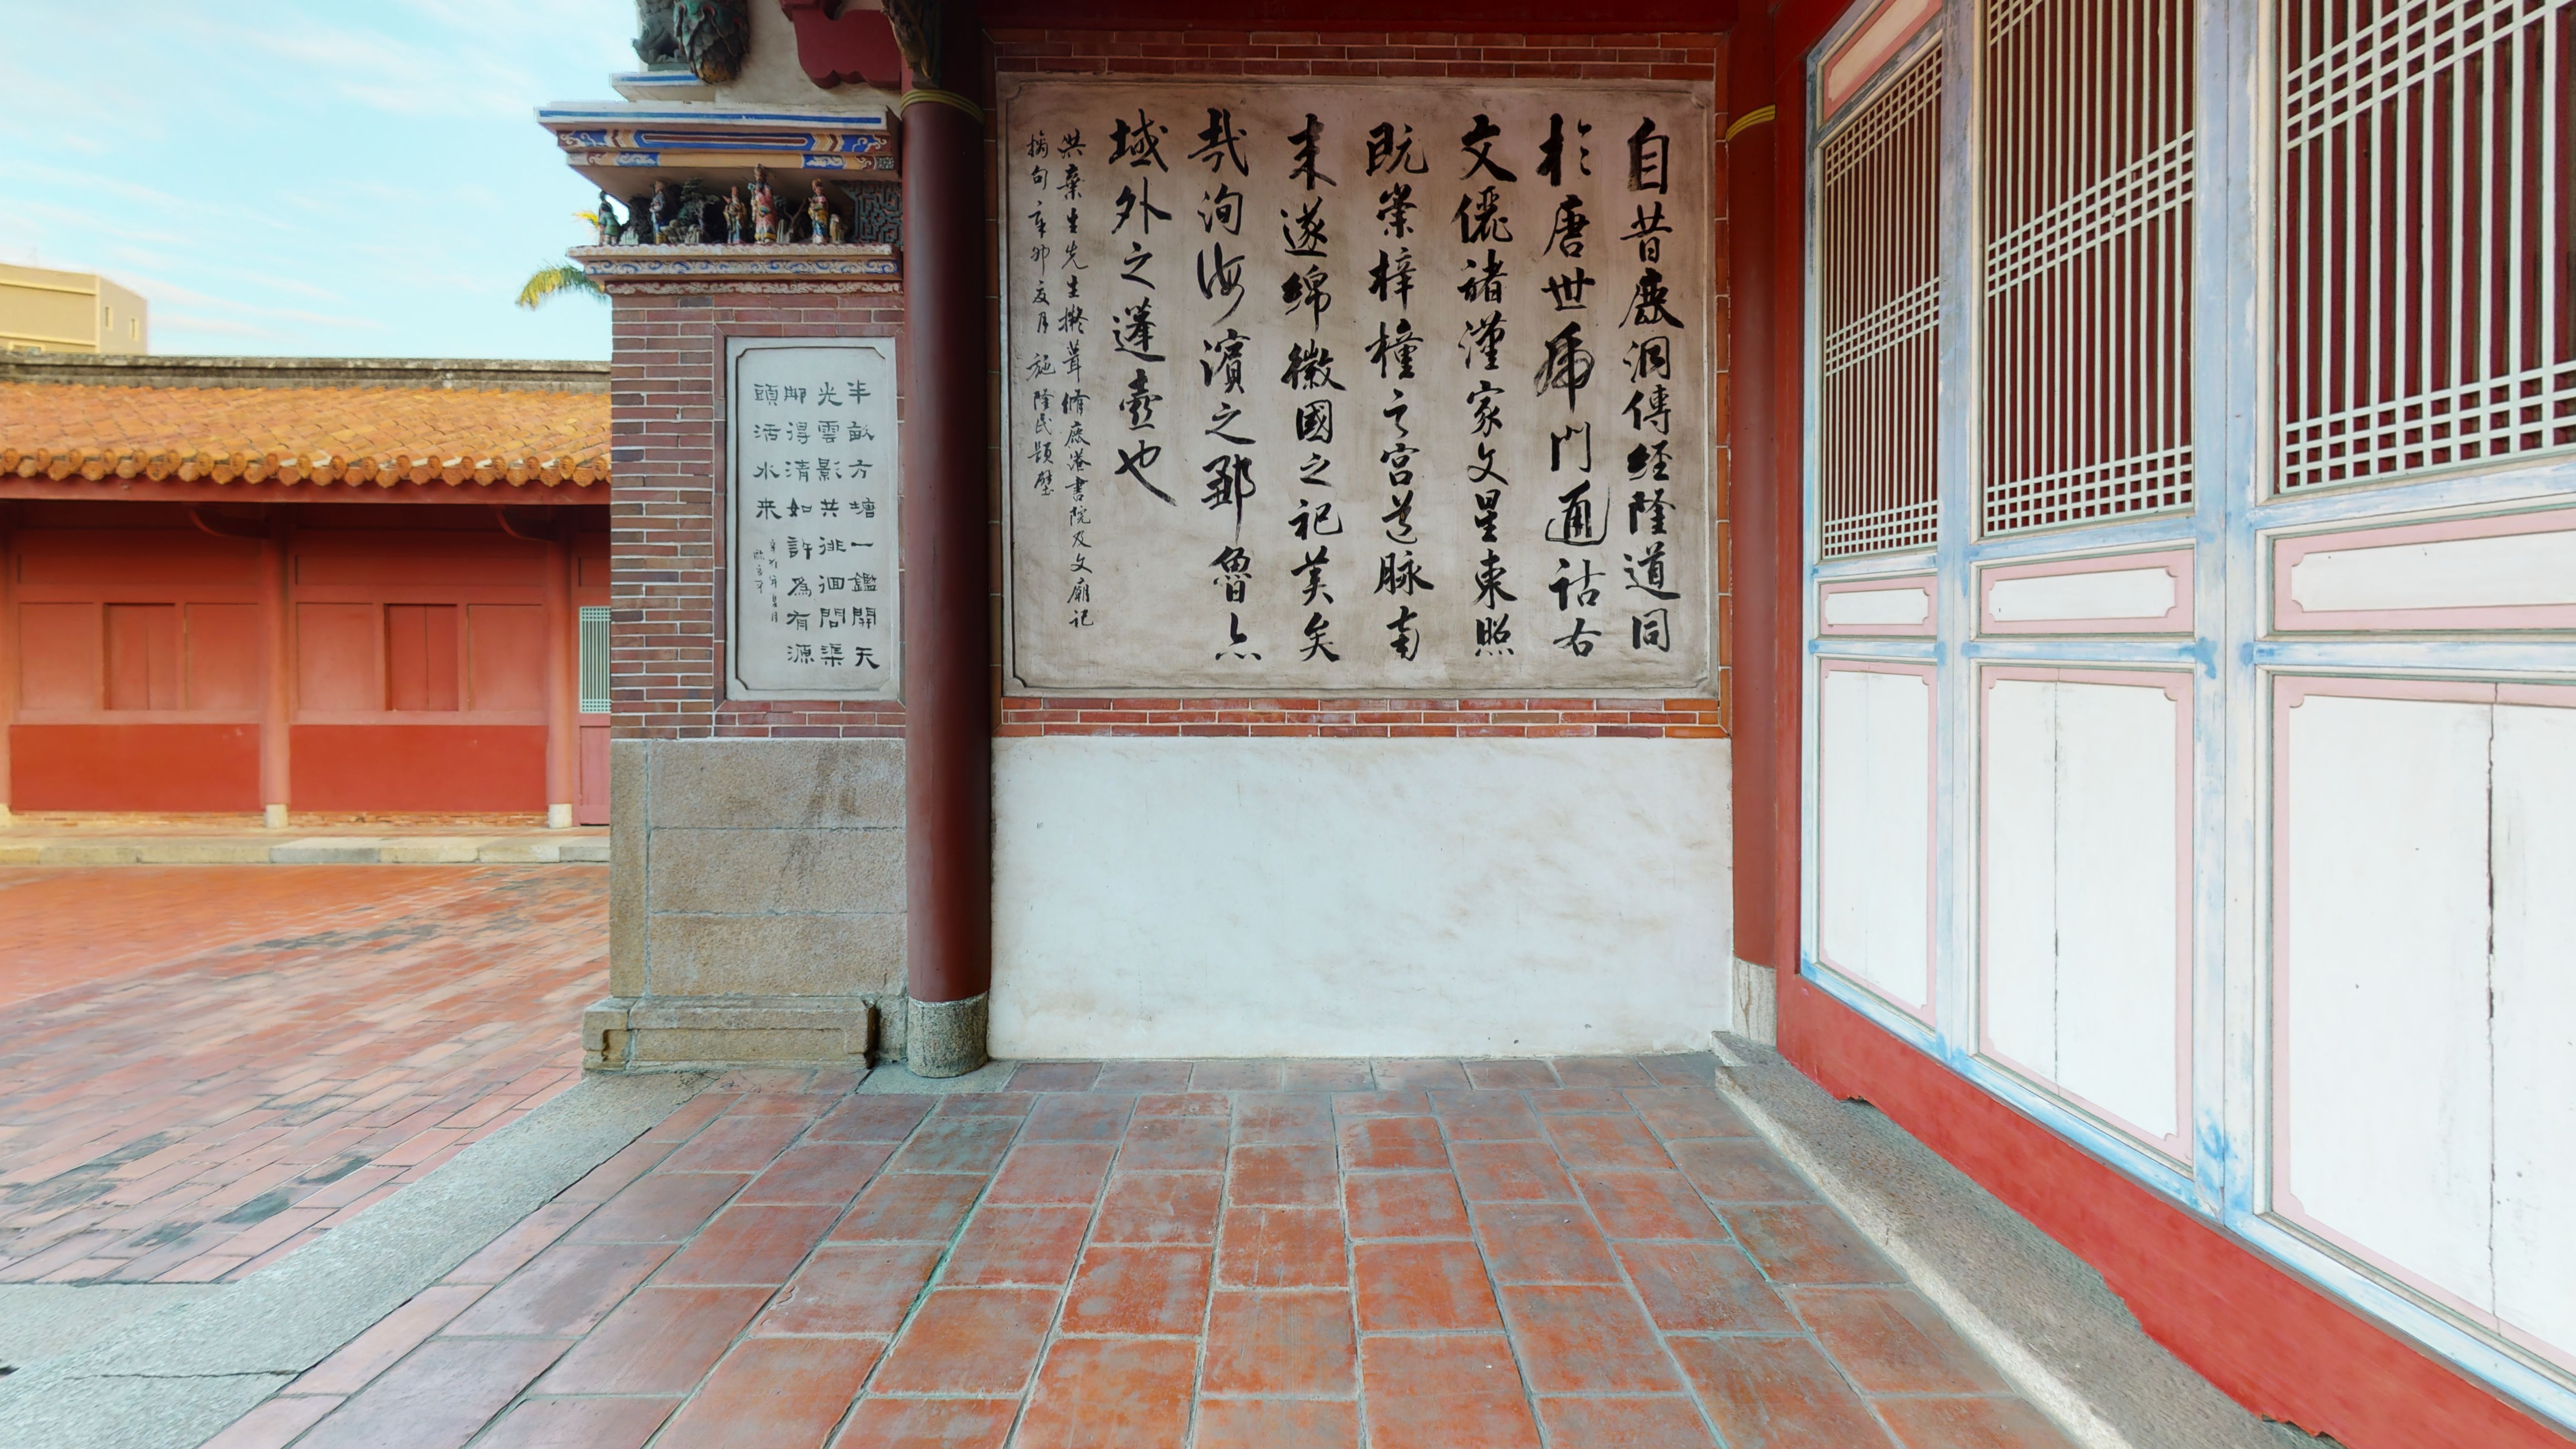 自昔鹿洞傳經隆道同
於唐世虎門通詁右
文儷諸漢家文星東照
既崇梓橦之宮道脉南
来遂綿徽國之祀美矣
哉洵海濱之鄒魯亦
域外之蓬壺也
洪棄生先生擬葺脩鹿港書院及文廟記
摘句辛卯夏月 施隆民題壁
半畝方塘一鑑開天
光雲影共徘徊問渠
那得清如許為有源
頭活水来
辛卯年夏月